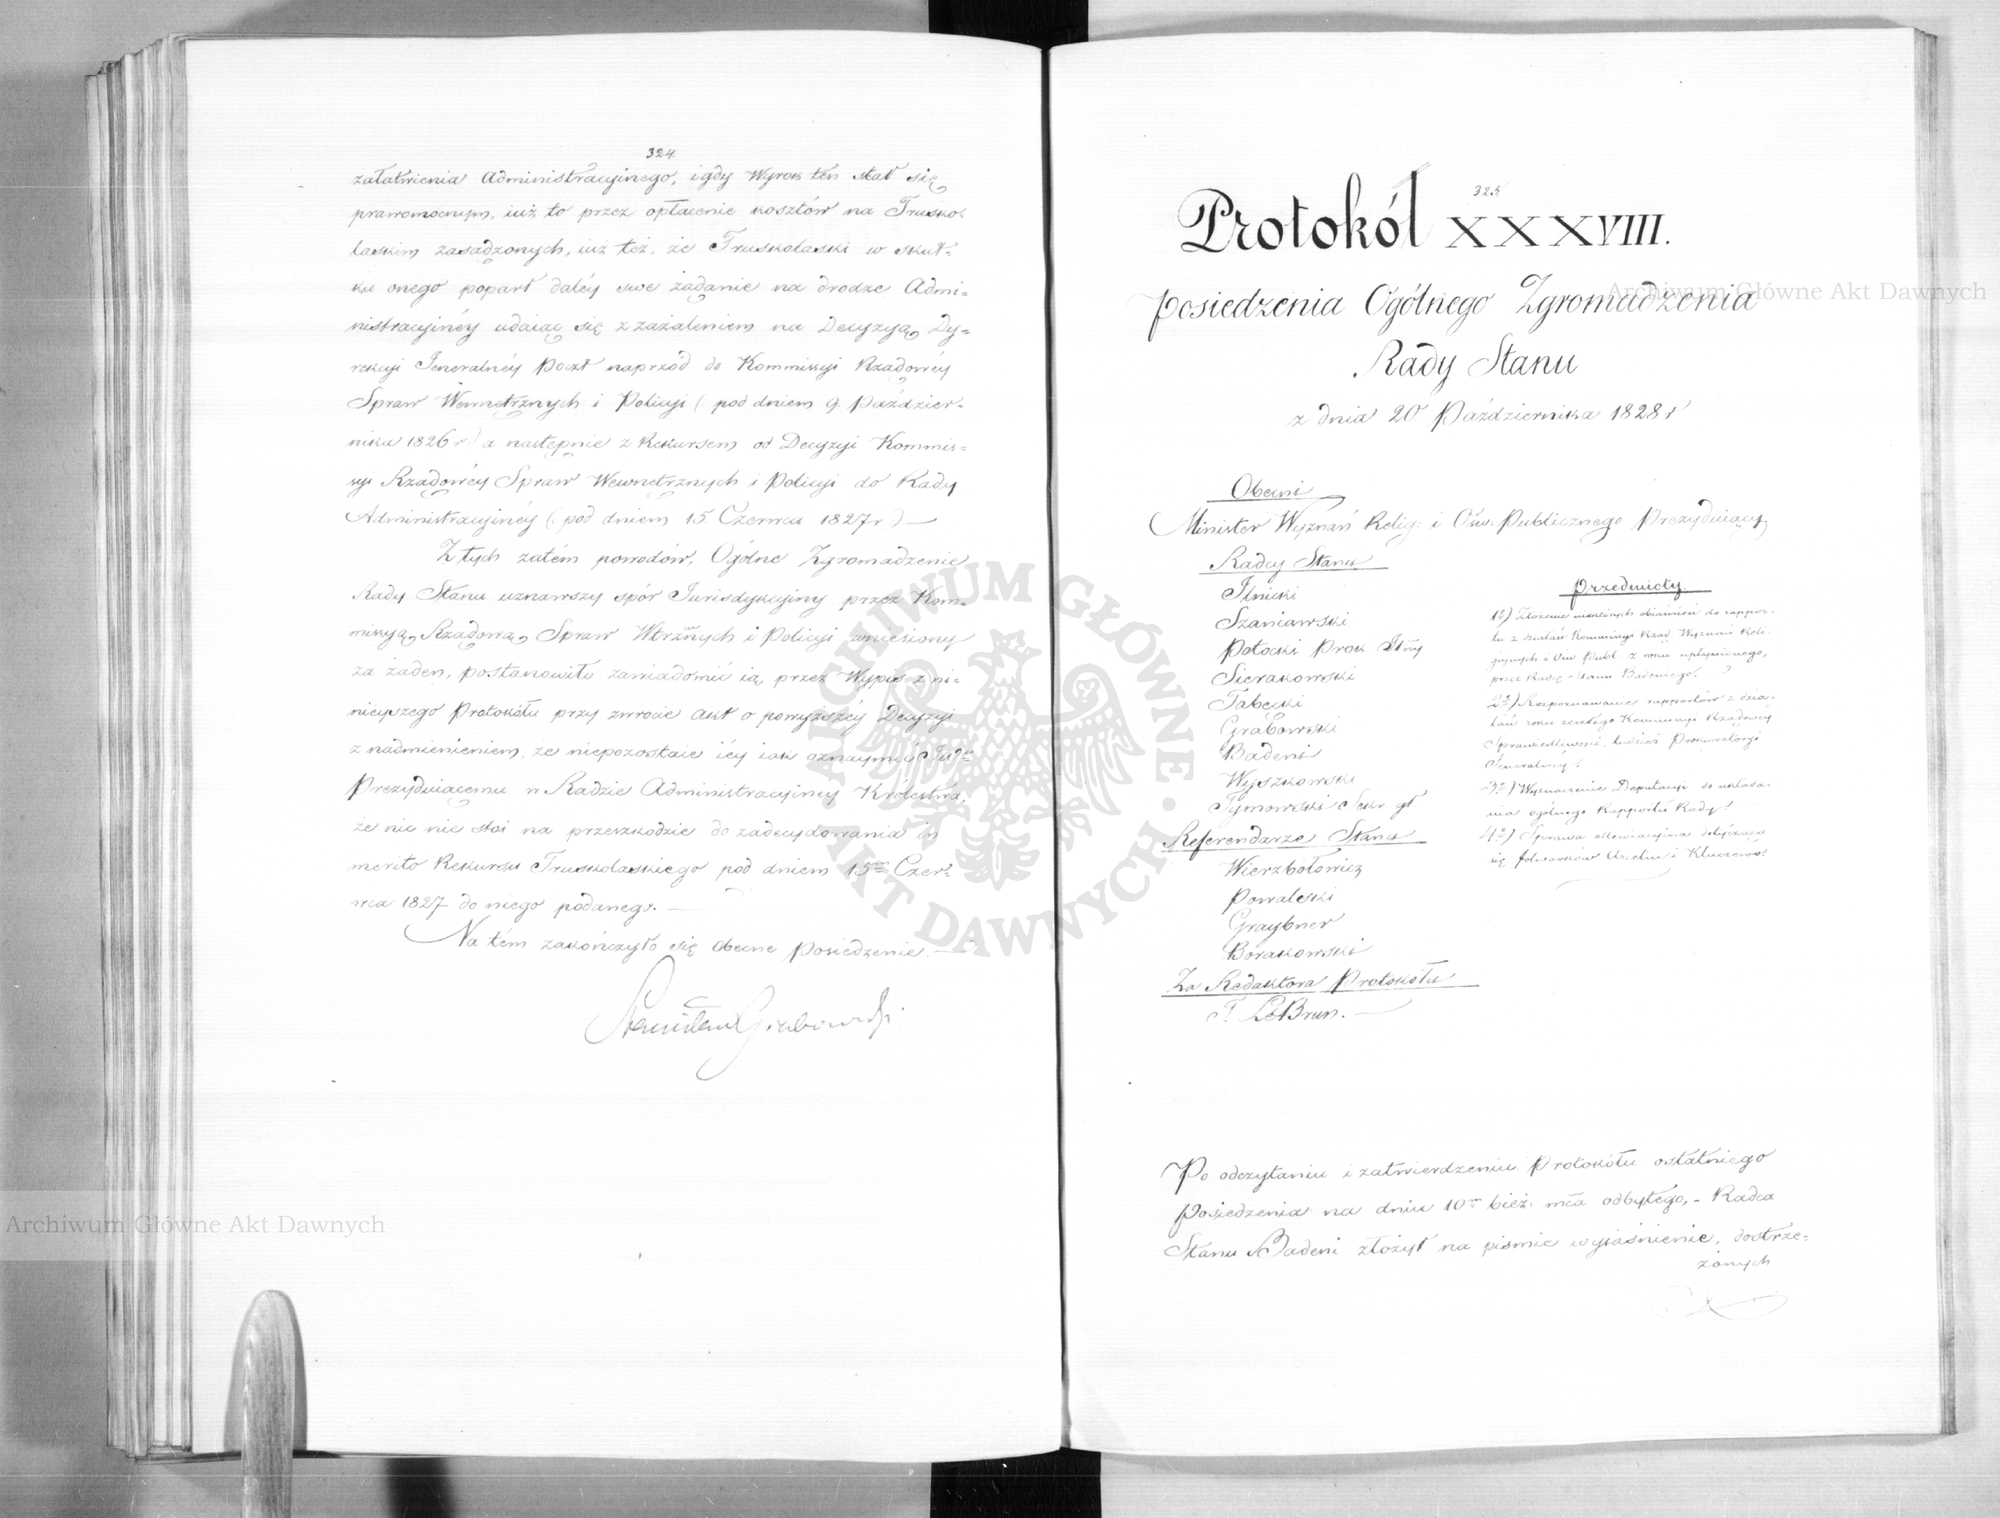 324.
załatwienia Administracyjnego, i gdy Wyrok ten stał się
prawomocnym, iuż to przez opłacenie kosztów na Trusko-
laskim zasądzonych, iuż też, że Truskolaski w skut-
ku onego popart daléy swe żądanie na drodze Admi-
nistracyjnéy udaiąc się z zażaleniem na Decyzyą Dy-
rekcyi Jeneralnéy Poczt naprzód do Kommissyi Rządowéy
Spraw Wewnętrznych i Policyi (pod dniem 9. Paździer-
nika 1826 r) a następnie z Rekursem od Decyzyi Kommis-
syi Rządowéy Spraw Wewnętrznych i Policyi do Rady
Administracyjnéy (pod dniem 15 Czerwca 1827 r) —
Z tych zatém powodów, Ogólne Zgromadzenie
Rady Stanu uznawszy spór Jurisdykcyiny przez Kom-
missyą Rządową Spraw Wtrznych i Policyi wniesiony
za żaden, postanowiło zawiadomić ią przez Wypis z ni-
nieyszego Protokółu przy zwrocie akt o powyższéy Decyzyi
z nadmienieniem, że niepozostaie iéy iak oznaymić
Prezyduiącemu w Radzie Administracyjnéy Królestwa,
że nic nie stoi na przeszkodzie do zadecydowania in
merito Rekursu Truskolaskiego pod dniem 15 Czer-
wca 1827 do niego podanego. —
Na tém zakończyło się obecne Posiedzenie. —
Stanisław Grabowski.
325
Protokół XXXVIII.
Posiedzenia Ogólnego Zgromadzenia
Rady Stanu
z dnia 20 Października 1828 r
Obecni
Minister Wyznań Relig: i Ośw: Publicznego Prezyduiący
Radcy Stanu
Ilnicki
Szaniawski
Potocki Prok. Jlny
Sierakowski
Tabecki
Grabowski
Badeni
Wyszkowski
Tymowski Sekr. gł
Referendarze Stanu
Wierzbołowicz
Powalski
Graybner
Borakowski
Za Redaktora Protokółu
F. LeBrun. —
Przedmioty
1º) Złożenie niektórych obiaśnień do rappor-
tu z działań Kommissyi Rząd. Wyznań Reli-
gijnych i Ośw. Publ. z roku upłynionego,
przez Radcę Stanu Badeniego.
2º) Rozpoznawanie rapportów z dzia-
łań roku zeszłego Kommissyi Rządowéy
Sprawiedliwości, tudzież Prokuratoryi
Jeneralnéy.
3º) Wyznaczenie Deputacyi do układa-
nia ogólnego Rapportu Rady.
4º) Sprawa dotycząca
się folwarków i Kluczewo.
Po odczytaniu i zatwierdzeniu Protokółu ostatniego
Posiedzenia na dniu 10 bież. mca odbytego, - Radca
Stanu Badeni złożył na pismie wyiaśnienie, dostrze-
żonych
Archiwum Główne Akt Dawnych
Archiwum Główne Akt Dawnych
ARCHIWUM GŁÓWNE AKT DAWNYCH